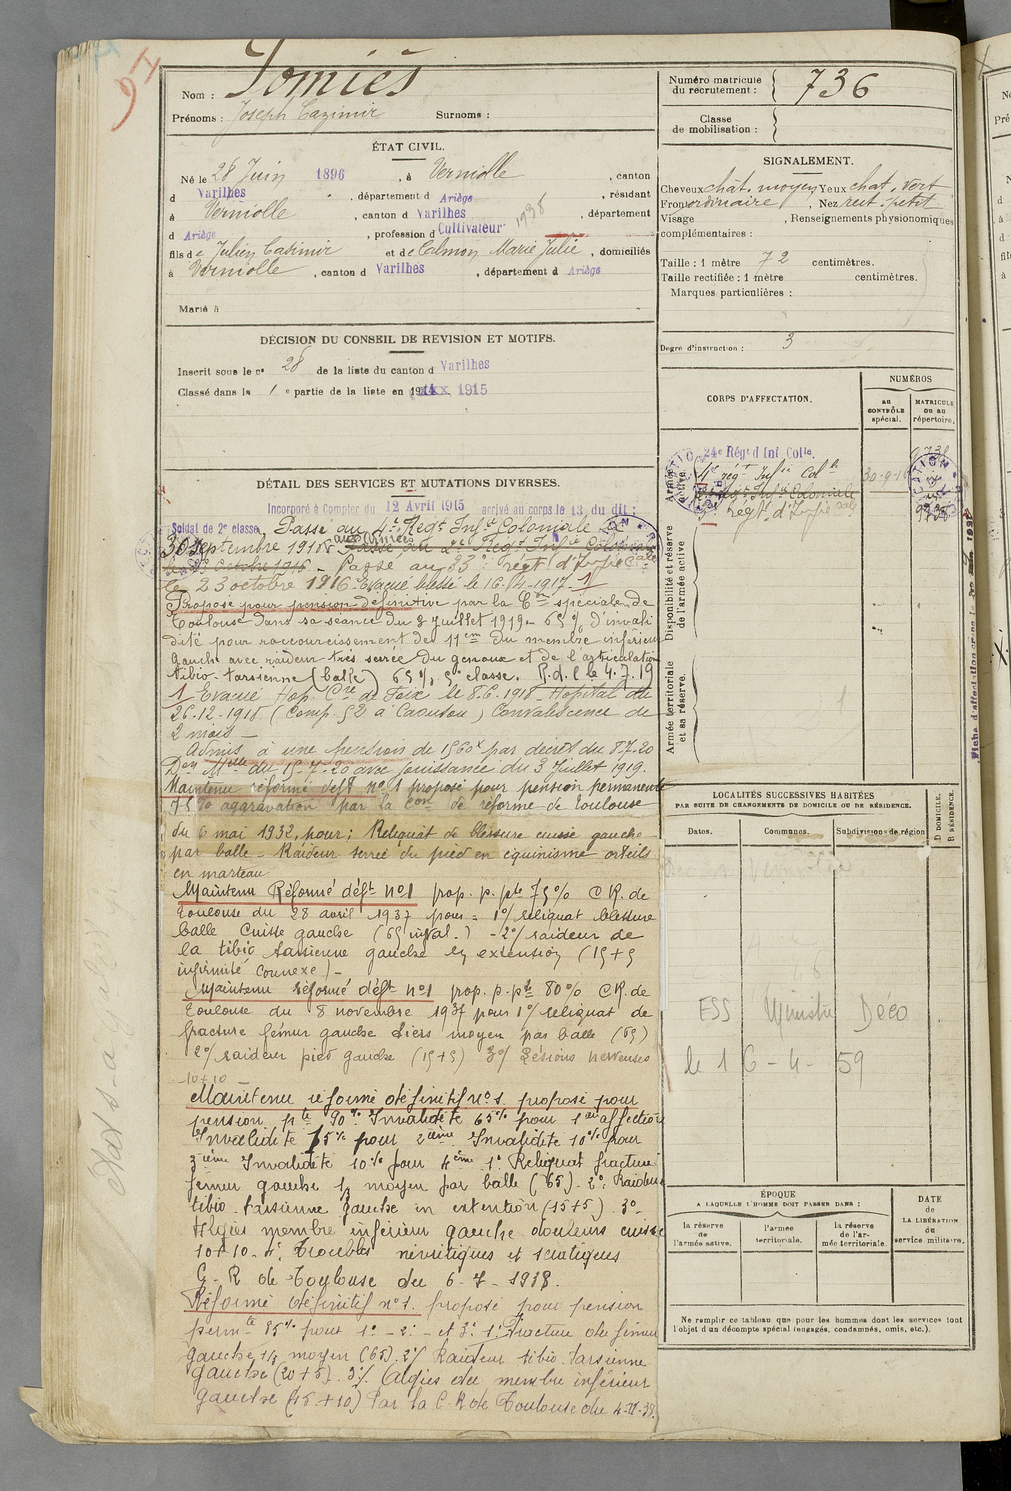 97
Nom : Jomiès
Prénoms : Joseph Cazimir Surnoms :
Numéro matricule du recrutement : 736
Classe de mobilisation :
ÉTAT CIVIL.
Né le 28 Juin 1896, à Verniolle, canton
d Varilhes, département d Ariège, résidant
à Verniolle, canton d Varilhes, département
d Ariège, profession d Cultivateur
fils de Julien Casimir et de Calmon Marie Julie, domiciliés
à Verniolle, canton d Varilhes, département d Ariège
Marié à
SIGNALEMENT.
Cheveux chât. moyen Yeux chat. vert
Front ordinaire, Nez rect. petit
Visage , Renseignements physionomiques
complémentaires :
Taille : 1 mètre 72 centimètres.
Taille rectifiée : 1 mètre centimètres.
Marques particulières :
Degré d'instruction : 3
DÉCISION DU CONSEIL DE REVISION ET MOTIFS.
Inscrit sous le nº 28 de la liste du canton d Varilhes
Classé dans la 1 e partie de la liste en 1915
DÉTAIL DES SERVICES ET MUTATIONS DIVERSES.
Incorporé à Compter du 12 Avril 1915 arrivé au corps le 13, du dit ;
Soldat de 2e classe, Passé au 4e Régt Infie Coloniale le
30 Septembre 1916
Passé au 53e régt d'Infie Cale
le 23 octobre 1916. Evacué blessé le 16-4-1917. 1
Proposé pour pension définitive par la Con spéciale de
Toulouse dans sa séance du 8 Juillet 1919. 65 % d'invali
dité pour raccourcissement de 11cm du membre inférieur
gauche avec raideur très serrée du genoux et de l'articulation
tibio-tarsienne (balle) 65%, 5e classe. P.d.l le 4.7.19
1 Evacué Hop. Cre de Foix le 8.6.1918 Hopital du
26-12-1918 Convalescence de
2 mois
Admis à une pension de 1560f par décret du 8.7.20
Don Mlle du 15-7-20 avec jouissance du 3 Juillet 1919.
Maintenu réformé deft nº 1 proposé pour pension permanente
75 % aggravation par la Con de réforme de Toulouse
du 6 mai 1932, pour : Reliquat de blessure cuisse gauche
par balle - Raideur serrée du pied en équinisme orteils
en marteau
Maintenu Réformé déft nº1 prop. p. pte 75% C.R. de
Toulouse du 28 avril 1937 pour = 1°/ reliquat blessure
balle Cuisse gauche (65 inval.) - 2°/ raideur de
la tibio tarsienne gauche en extension (15+5
infirmité connexe) -
Maintenu réformé déft nº1 prop. p. pte 80% C.R. de
Toulouse du 8 novembre 1937 pour 1°/ reliquat de
fracture fémur gauche tiers moyen par balle (65)
2°/ raideur pied gauche (15+5) 3°/ Lésions nerveuses
10+10
Maintenu réformé définitif nº 1. proposé pour
pension pte 90% Invalidité 65% pour 1ère affection
Invalidité 15% pour 2ième Invalidité 10% pour
3ième Invalidité 10% pour 4ème 1° Reliquat fracture
fémur gauche 1/3 moyen par balle (65). 2° Raideur
tibio-tarsienne gauche en extention (15+5). 3°-
Algies membre inférieur gauche douleurs cuisse
10+10 - 4° Troubles névritiques et sciatiques
C.R de Toulouse du 6-7-1938.
Réformé définitif nº 1. proposé pour pension
permte 85% pour 1° - 2° - et 3° 1° Fracture du fémur
gauche 1/3 moyen (65). 2°/ Raideur tibio-tarsienne
gauche (20+5). 3°/. Algies du membre inférieur
gauche (15+10) Par la C.R de Toulouse du 4-11-38.
CORPS D'AFFECTATION.
NUMÉROS
AU CONTRÔLE spécial.
MATRICULE OU AU répertoire.
Armée active.
24e Régt d'Inf Colle.
4e régt Infie Colle 30-9-16
53e régt d'Infie Cale
Disponibilité et réserve de l'armée active
Armée territoriale et sa réserve.
LOCALITÉS SUCCESSIVES HABITÉES
PAR SUITE DE CHANGEMENTS DE DOMICILE OU DE RÉSIDENCE.
Dates. Communes. Subdivisions de région D DOMICILE. R RÉSIDENCE.
ESS Ministre Deco
le 16-4-59
ÉPOQUE
A LAQUELLE L'HOMME DOIT PASSER DANS :
la réserve de l'armée active.
l'armée territoriale.
la réserve de l'armée territoriale.
DATE DE LA LIBÉRATION du service militaire.
Ne remplir ce tableau que pour les hommes dont les services font
l'objet d'un décompte spécial (engagés, condamnés, omis, etc.).